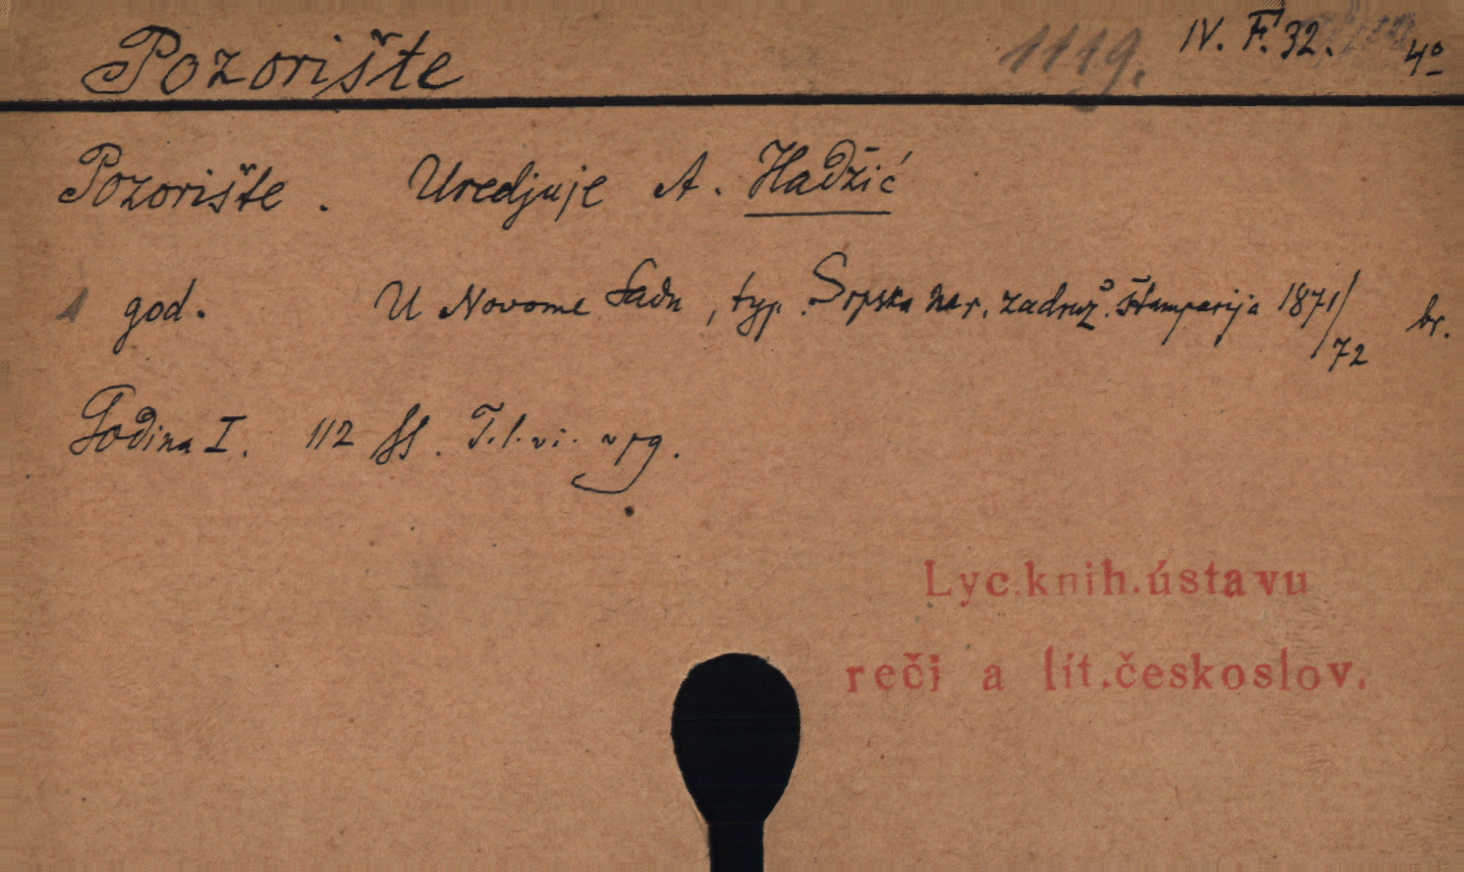 Pozorište 1119. IV. F. 32. 4º
Pozorište. Uredjuje A. Hadžić
1 god. U Novome Sadu, typ. Srpska nar. zadruž. štamparija 1871/72 br.
Godina I. 112
Lyc.knih.ústavu
reči a lit.českoslov.